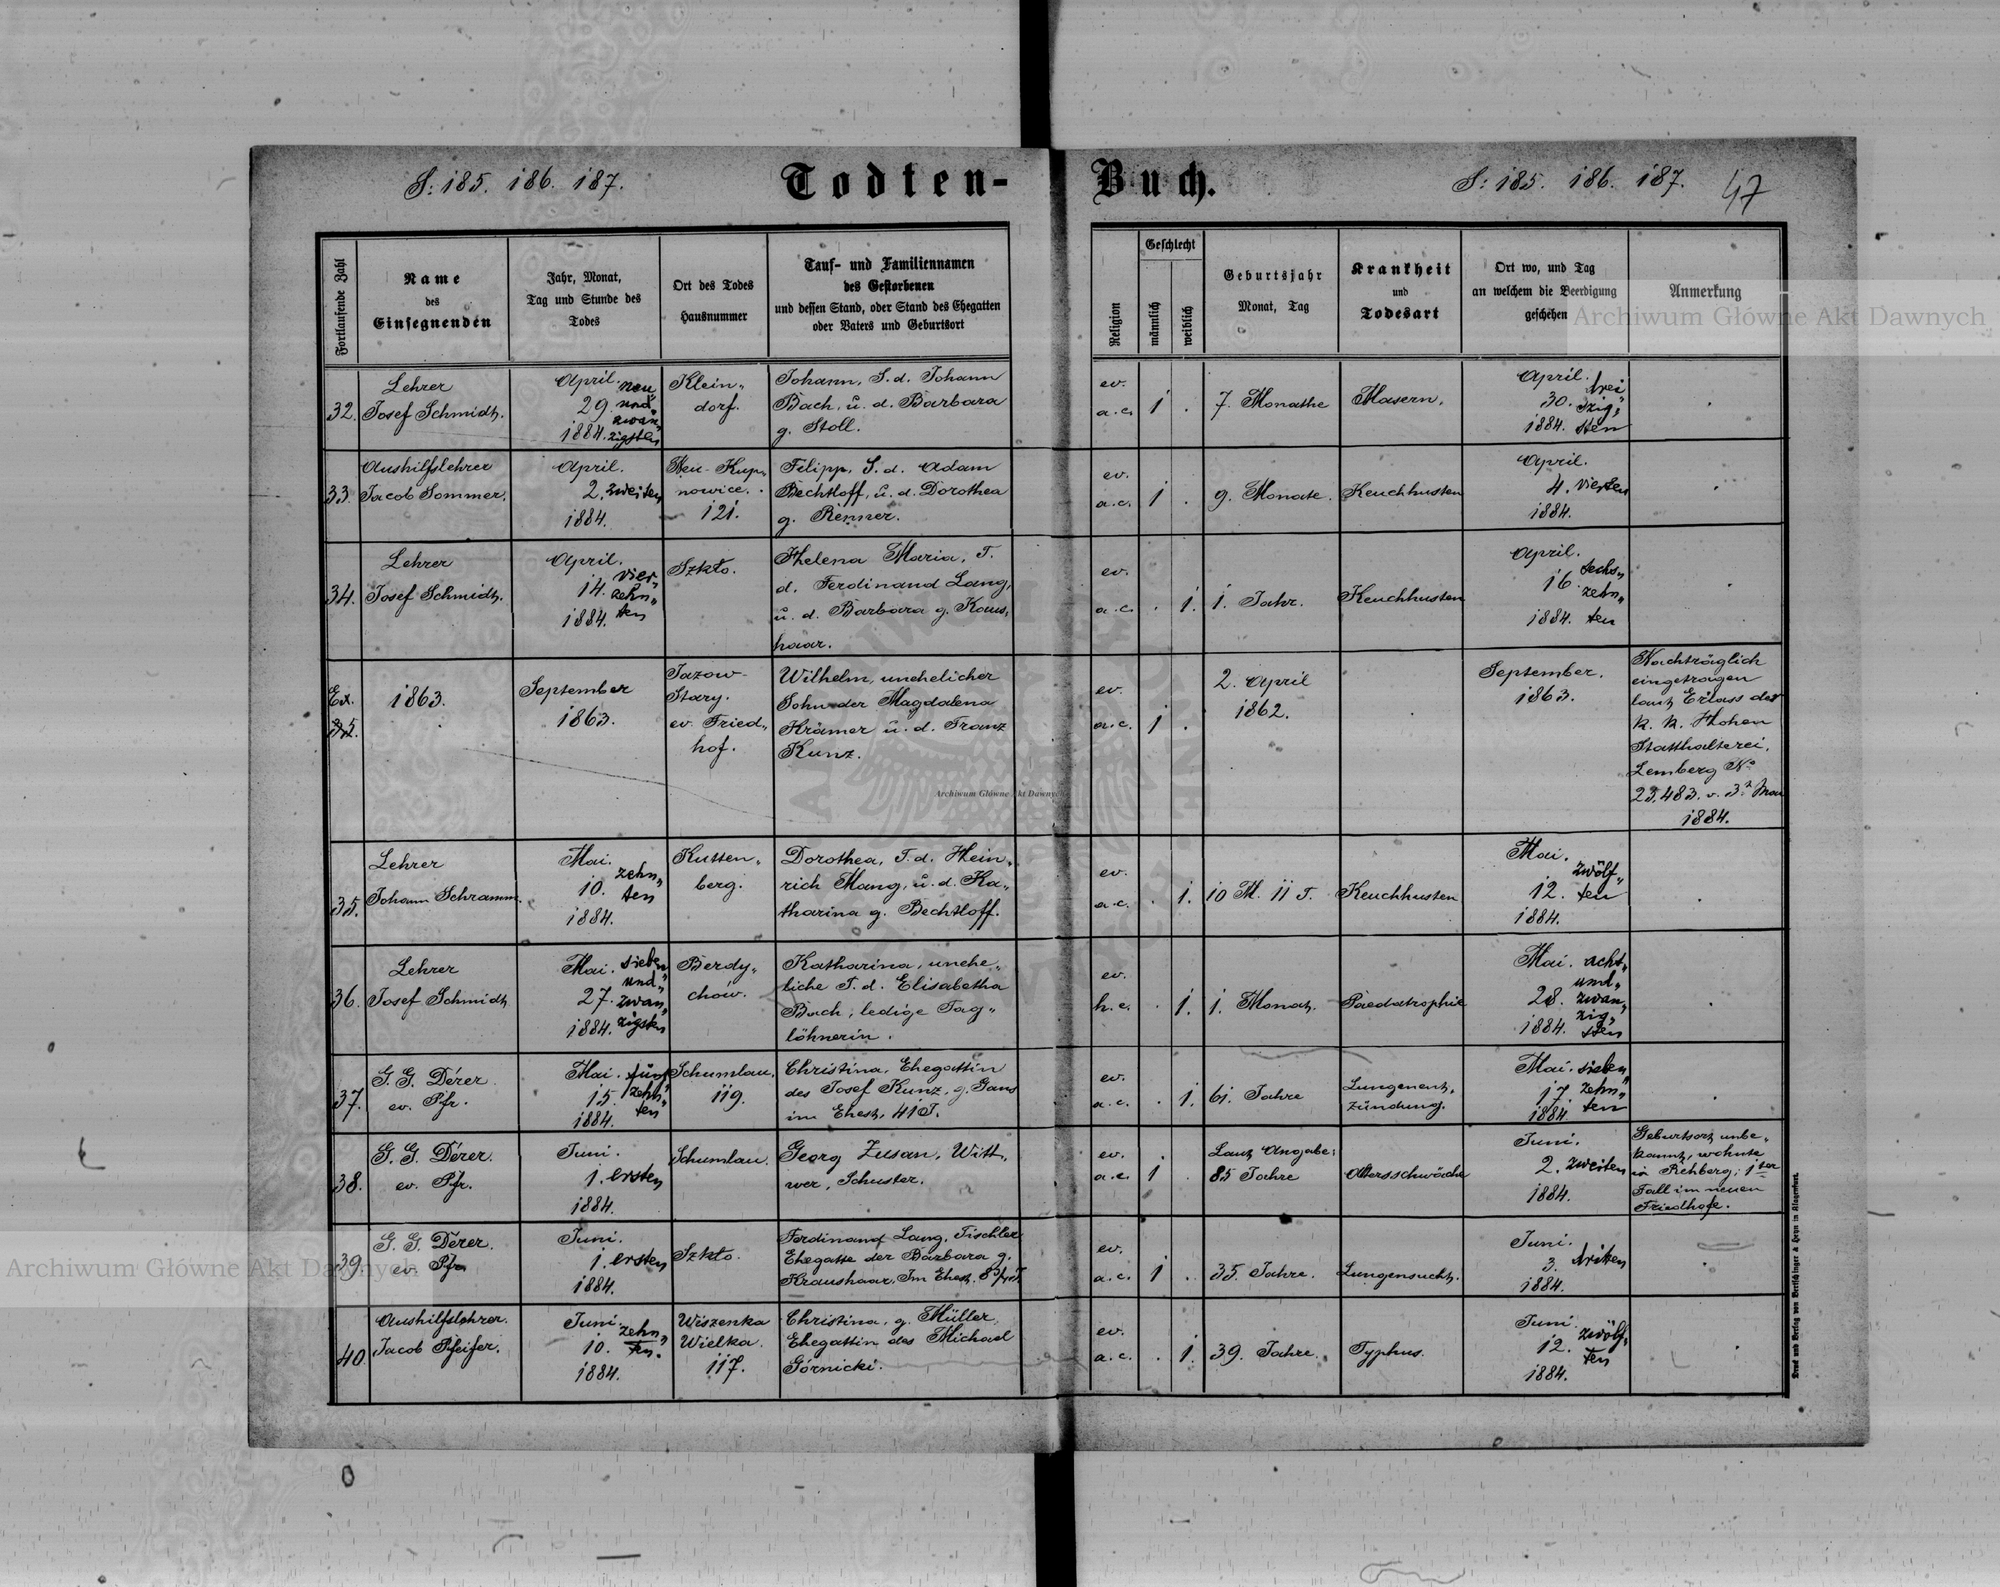 S: 185. 186. 187.
Todten-
Buch.
S: 185. 186. 187.
47
Fortlaufende Zahl
Name
des
Einsegnenden
Jahr, Monat,
Tag und Stunde des
Todes
Ort des Todes
Hausnummer
Tauf- und Familiennamen
des Gestorbenen
und dessen Stand, oder Stand des Ehegatten
oder Vaters und Geburtsort
Religion
Geschlecht
männlich
weiblich
Geburtsjahr
Monat, Tag
Krankheit
und
Todesart
Ort wo, und Tag
an welchem die Beerdigung
geschehen
Anmerkung
Archiwum Główne Akt Dawnych
32.
Lehrer
Josef Schmidt.
April. neun
29. und„
zwan„
1884. zigsten
Klein„
dorf.
Johann, S. d. Johann
Bach, u. d. Barbara
g. Stoll.
ev.
a. c.
1
.
7. Monathe
Masern.
April. drei„
30. szig„
1884. sten
.
33.
Aushilfslehrer
Jacob Sommer.
April.
2. zweiten
1884.
Neu-Kup„
nowice.
121.
Filipp, S. d. Adam
Bechtloff, u. d. Dorothea
g. Renner.
ev.
a. c.
1
.
9. Monate.
Keuchhusten
April.
4. vierten
1884.
.
34.
Lehrer
Josef Schmidt.
April.
14. vier„
zehn„
1884. ten
Szkło.
Helena Maria, T.
d. Ferdinand Lang,
u. d. Barbara g. Kraus„
haar.
ev.
a. c.
.
1.
1. Jahr.
Keuchhusten
April.
16. sechs„
zehn„
1884. ten
Ex.
1863.
September
1863.
Jazow-
Stary.
ev. Fried„
hof.
Wilhelm, unehelicher
Sohn der Magdalena
Krämer u. d. Franz
Kunz.
ev.
a. c.
1
.
2. April
1862.
.
September.
1863.
Nachträglich
eingetragen
laut Erlass der
k. k. Hohen
Statthalterei,
Lemberg No
23.483. v. 3. Mai
1884.
35.
Lehrer
Johann Schramm.
Mai.
10. zehn„
ten
1884.
Kutten„
berg.
Dorothea, T. d. Hein„
rich Mang, u. d. Ka„
tharina g. Bechtloff.
ev.
a. c.
.
1.
10 M. 11 T.
Keuchhusten
Mai.
12. zwölf„
ten
1884.
.
36.
Lehrer
Josef Schmidt
Mai. sieben
und„
27. zwan„
1884. zigsten
Berdy„
chów.
Katharina, unehe„
liche T. d. Elisabetha
Bach, ledige Tag„
löhnerin.
ev.
h. c.
.
1.
1. Monat.
Paedatrophie
Mai. acht„
und„
28. zwan„
zig„
1884. sten
.
37.
G. G. Dérer.
ev. Pfr.
Mai. fünf
15. zehn„
ten
1884.
Schumlau.
119.
Christina, Ehegattin
des Josef Kunz, g. Gans
im Ehest. 41 J.
ev.
a. c.
.
1.
61. Jahre
Lungenent„
zündung.
Mai. sieben„
17. zehn„
1884. ten
.
38.
G. G. Dérer.
ev. Pfr.
Juni.
1. ersten
1884.
Schumlau.
Georg Zusan, Witt„
wer, Schuster.
ev.
a. c.
1
.
Laut Angabe:
85 Jahre
Altersschwäche
Juni.
2. zweiten
1884.
Geburtsort unbe„
kannt, wohnte
in Rehberg; 1ster
Fall im neuen
Friedhofe.
39.
G. G. Dérer.
ev. Pfr
Juni.
1. ersten
1884.
Szkło.
Ferdinand Lang, Tischler
Ehegatte der Barbara g.
Kraushaar. Im Ehest.
ev.
a. c.
1
.
35. Jahre.
Lungensucht.
Juni.
3. dritten
1884.
.
40.
Aushilfslehrer.
Jacob Pfeifer.
Juni.
10. zehn„
ten.
1884.
Wiszenka
Wielka.
117.
Christina, g. Müller,
Ehegattin des Michael
Górnicki.
ev.
a. c.
.
1.
39. Jahre.
Typhus.
Juni.
12. zwölf„
ten
1884.
.
Druck und Verlag von Bertschinger & Heyn in Klagenfurt.
Archiwum Główne Akt Dawnych
Archiwum Główne Akt Dawnych